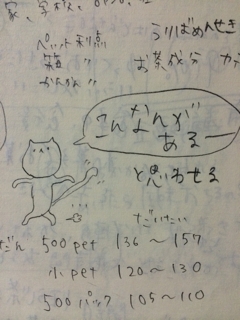 家、学校、
ペット利点
箱 〃
かんたん 〃
うりばめんせき
お茶成分 カフ
こんなんが
あるー
と思わせる
だいたい
だん 500 pet 136〜157
小 pet 120〜130
500 パック 105〜110